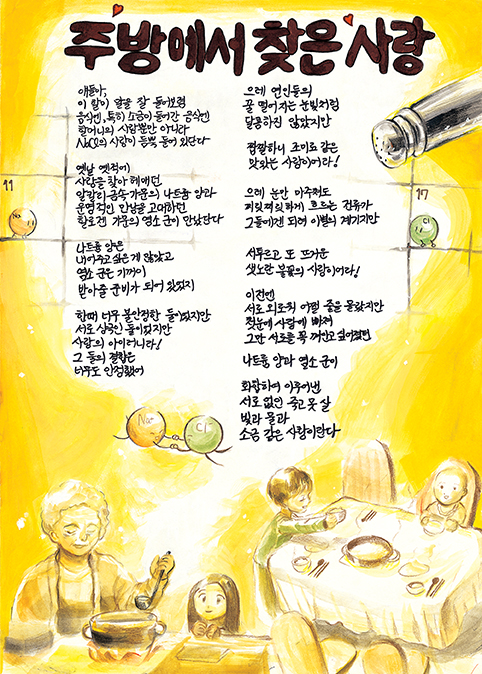 주방에서 찾은 사랑
얘들아,
이 할미 말을 잘 들어보렴
음식엔, 특히 소금이 들어간 음식엔
할머니의 사랑뿐만 아니라
NaCl의 사랑이 듬뿍 들어 있단다
옛날 옛적에
사랑을 찾아 헤매던
알칼리 금속 가문의 나트륨 양과
운명적인 만남을 고대하던
할로겐 가문의 염소 군이 만났단다
나트륨 양은
내어주고 싶은 게 많았고
염소 군은 기꺼이
받아줄 준비가 되어 있었지
한때 너무 불안정한 둘이었지만
서로 상극인 둘이었지만
사랑의 아이러니라!
그 둘의 결합은
너무도 안정했어
으레 연인들의
꿀 떨어지는 눈빛처럼
달콤하진 않았지만
짭짤하니 조미료 같은
맛있는 사랑이어라!
으레 눈만 마주쳐도
찌릿찌릿하게 흐르는 전류가
그들에겐 되려 이별의 계기지만
서투르고 또 뜨거운
샛노란 불꽃의 사랑이어라!
이전엔
서로 외로워 어쩔 줄을 몰랐지만
첫눈에 사랑에 빠져
그만 서로를 꼭 껴안고 싶어졌던
나트륨 양과 염소 군이
화합하여 이루어낸
서로 없인 죽고 못 살
빛과 물과
소금 같은 사랑이란다
11
Na
17
Cl
Na⁺
Cl⁻